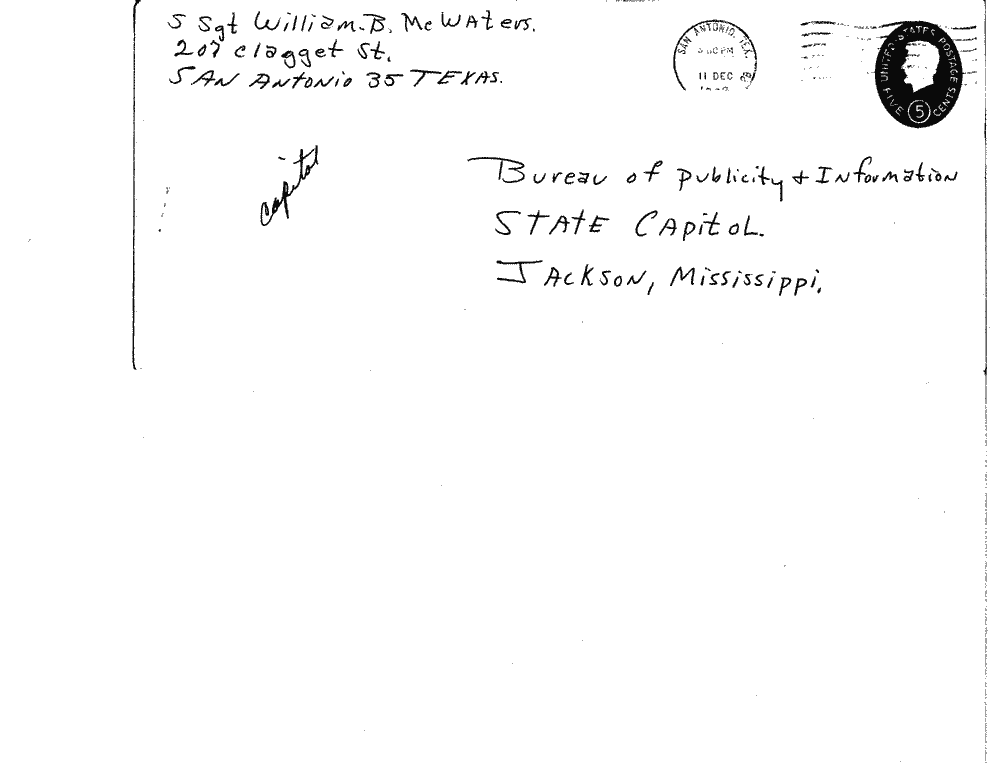 S Sgt William. B. Mc WAters.
207 clagget St.
SAN ANtoNio 35 TEXAS.
SAN ANTONIO, TEX.
PM
11 DEC
UNITED STATES POSTAGE
FIVE 5 CENTS
capitol
Bureau of publicity + INformation
STATE CApitoL.
JAckSoN, Mississippi.